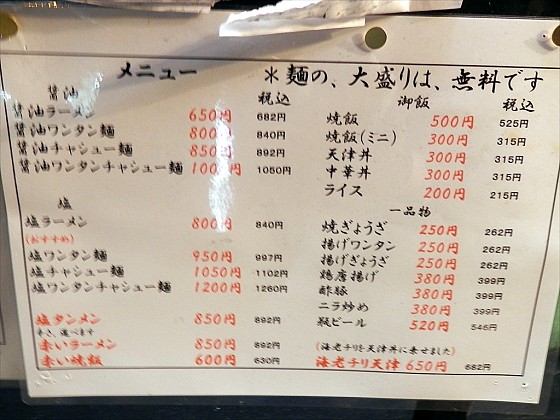 メニュー
＊麺の、大盛りは、無料です
醤油
税込
醤油ラーメン 650円 682円
醤油ワンタン麺 800円 840円
醤油チャシュー麺 850円 892円
醤油ワンタンチャシュー麺 1000円 1050円
塩
塩ラーメン 800円 840円
(おすすめ)
塩ワンタン麺 950円 997円
塩チャシュー麺 1050円 1102円
塩ワンタンチャシュー麺 1200円 1260円
塩タンメン 850円 892円
辛さ、選べます
赤いラーメン 850円 892円
赤い焼飯 600円 630円
御飯
税込
焼飯 500円 525円
焼飯(ミニ) 300円 315円
天津丼 300円 315円
中華丼 300円 315円
ライス 200円 215円
一品物
焼ぎょうざ 250円 262円
揚げワンタン 250円 262円
揚げぎょうざ 250円 262円
鶏唐揚げ 380円 399円
酢豚 380円 399円
ニラ炒め 380円 399円
瓶ビール 520円 546円
(海老チリを天津丼に乗せました)
海老チリ天津 650円 682円